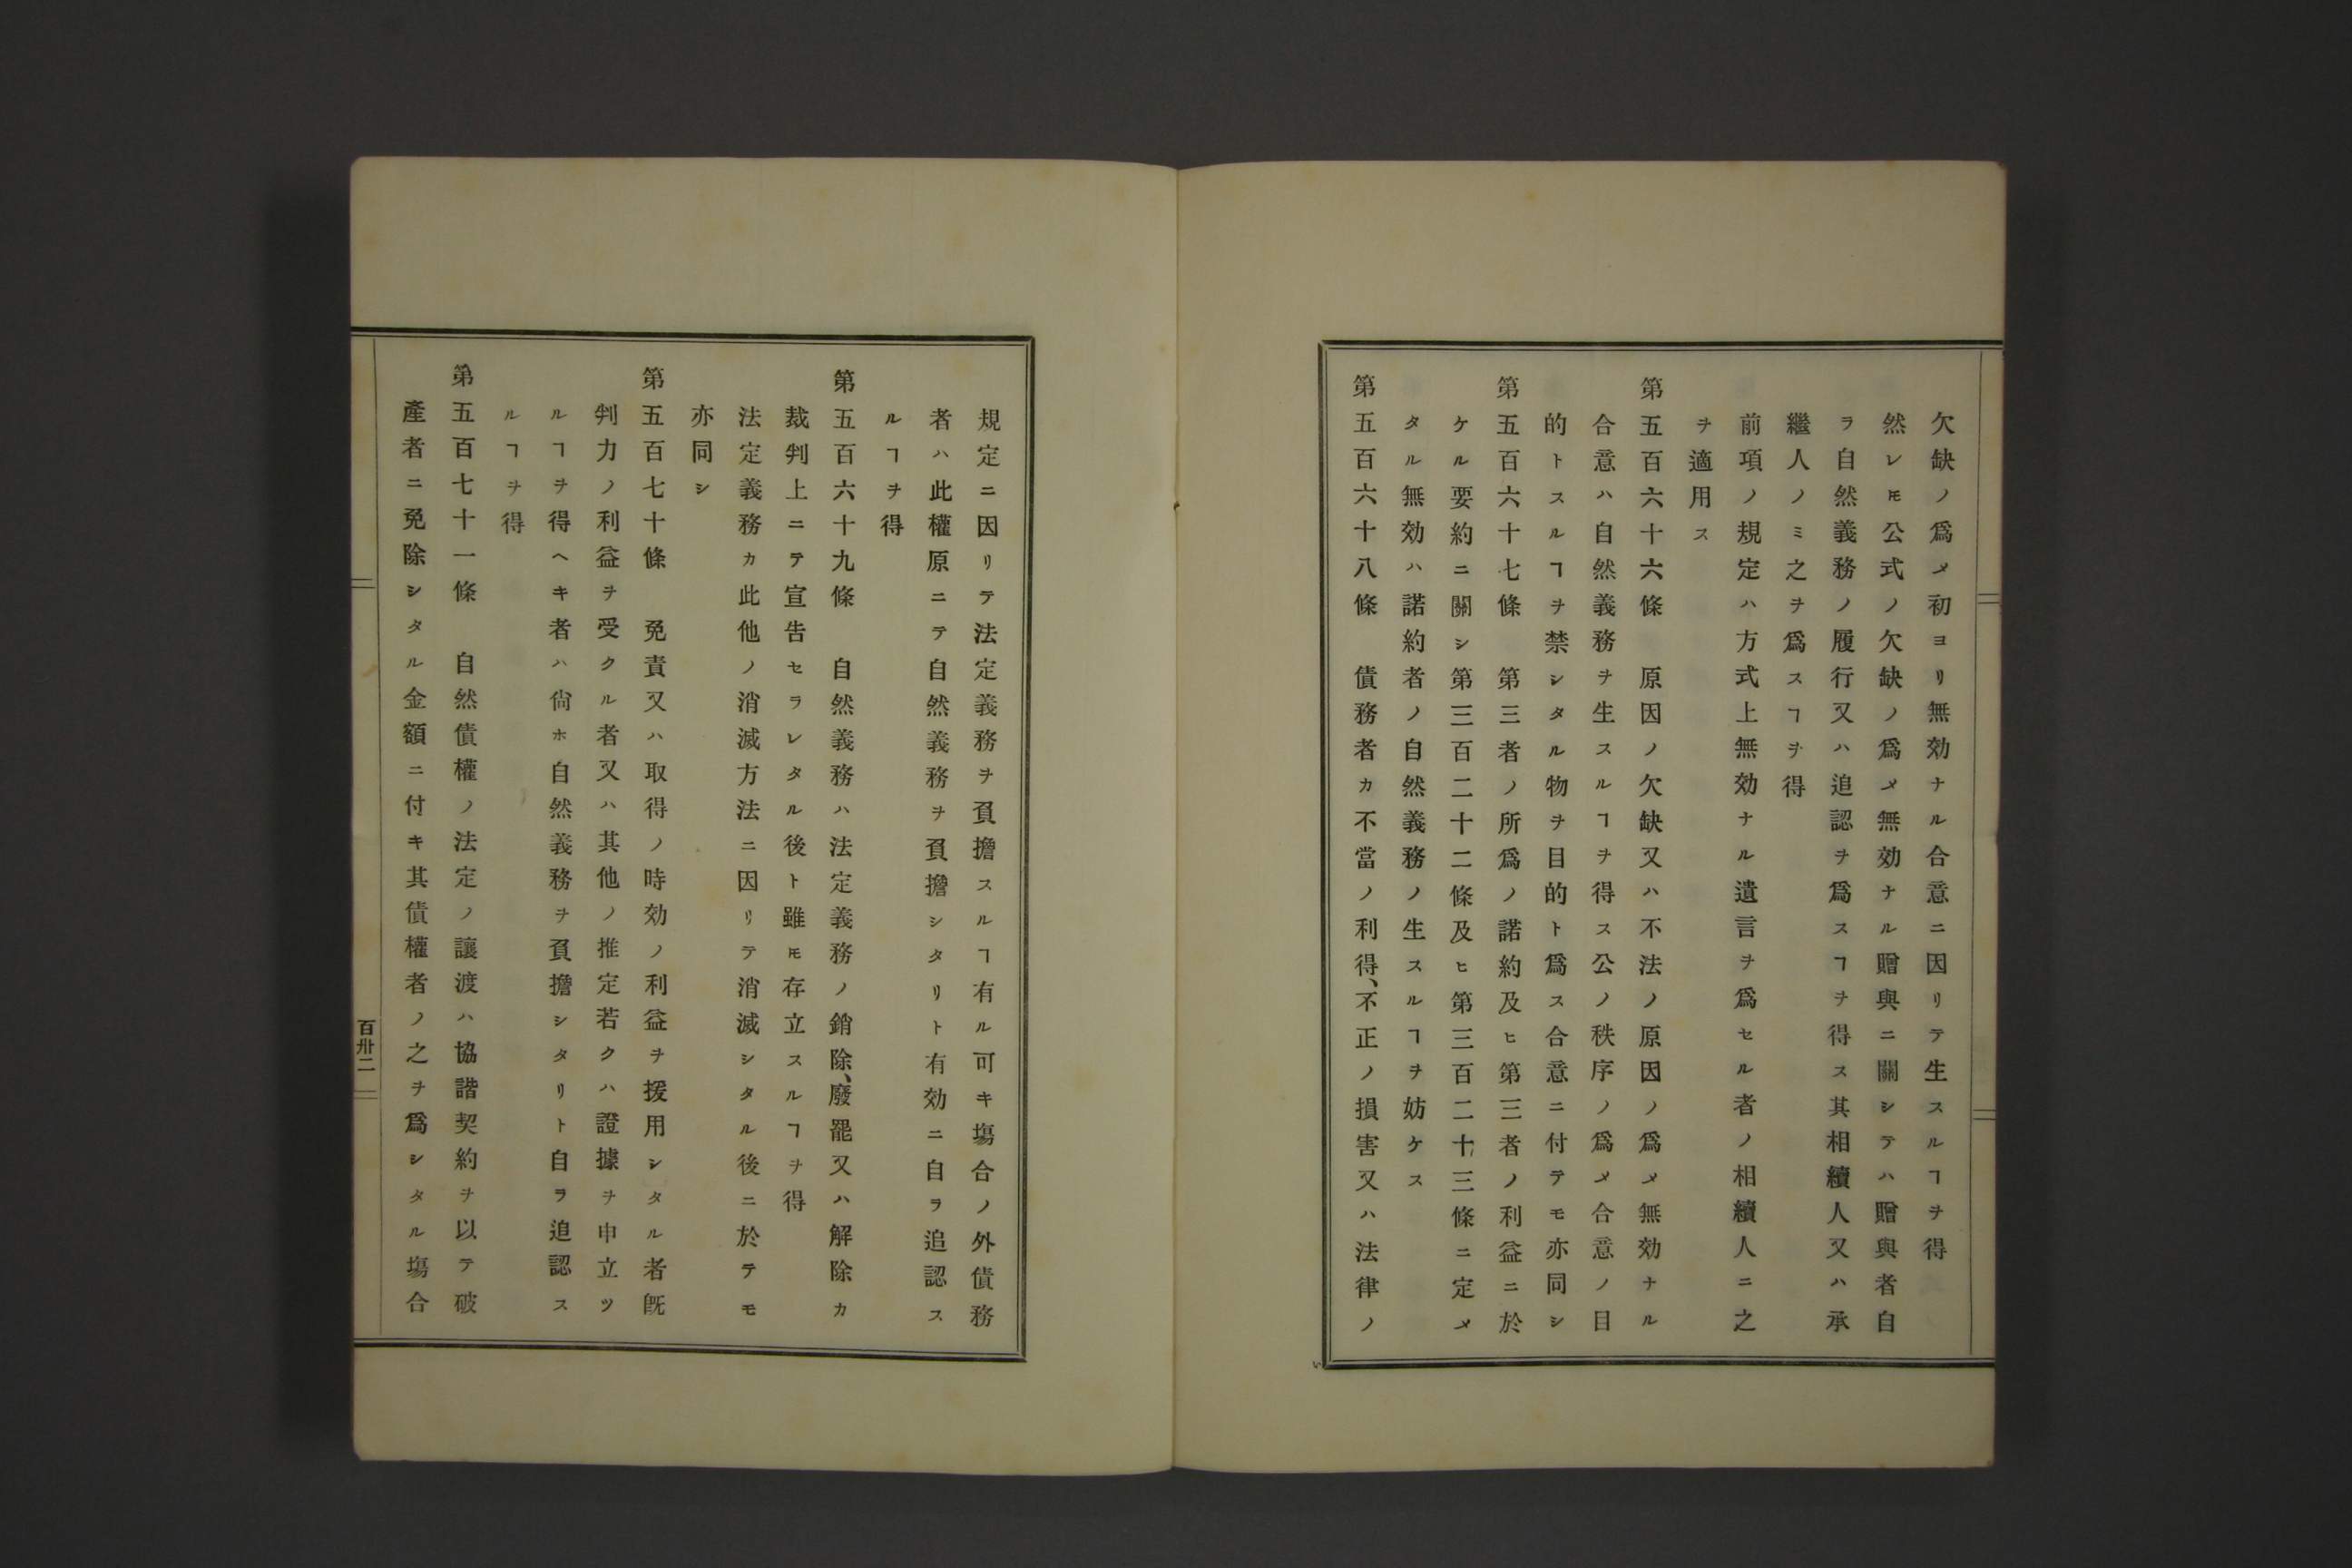 欠缺ノ爲メ初ヨリ無効ナル合意ニ因リテ生スルヿヲ得
然レ𪜈公式ノ欠缺ノ爲メ無効ナル贈與ニ關シテハ贈與者自
ラ自然義務ノ履行又ハ追認ヲ爲スヿヲ得ス其相續人又ハ承
繼人ノミ之ヲ爲スヿヲ得
前項ノ規定ハ方式上無効ナル遺言ヲ爲セル者ノ相續人ニ之
ヲ適用ス
第五百六十六條　原因ノ欠缺又ハ不法ノ原因ノ爲メ無効ナル
合意ハ自然義務ヲ生スルヿヲ得ス公ノ秩序ノ爲メ合意ノ目
的トスルヿヲ禁シタル物ヲ目的ト爲ス合意ニ付テモ亦同シ
第五百六十七條　第三者ノ所爲ノ諾約及ヒ第三者ノ利益ニ於
ケル要約ニ關シ第三百二十二條及ヒ第三百二十三條ニ定メ
タル無効ハ諾約者ノ自然義務ノ生スルヿヲ妨ケス
第五百六十八條　債務者カ不當ノ利得、不正ノ損害又ハ法律ノ
規定ニ因リテ法定義務ヲ負擔スルヿ有ル可キ塲合ノ外債務
者ハ此權原ニテ自然義務ヲ負擔シタリト有効ニ自ラ追認ス
ルヿヲ得
第五百六十九條　自然義務ハ法定義務ノ銷除、廢罷又ハ解除カ
裁判上ニテ宣告セラレタル後ト雖𪜈存立スルヿヲ得
法定義務カ此他ノ消滅方法ニ因リテ消滅シタル後ニ於テモ
亦同シ
第五百七十條　免責又ハ取得ノ時効ノ利益ヲ援用シタル者既
判力ノ利益ヲ受クル者又ハ其他ノ推定若クハ證據ヲ申立ツ
ルヿヲ得ヘキ者ハ尙ホ自然義務ヲ負擔シタリト自ラ追認ス
ルヿヲ得
第五百七十一條　自然債權ノ法定ノ讓渡ハ協諧契約ヲ以テ破
產者ニ免除シタル金額ニ付キ其債權者ノ之ヲ爲シタル塲合
百卅二